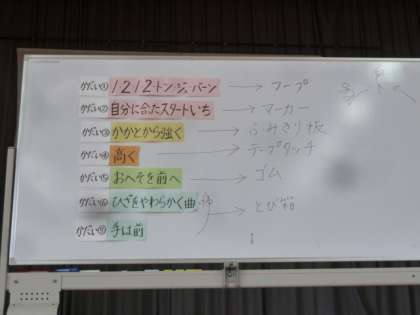 かだい① 1212トン.ジャ.バーン → フープ
かだい② 自分に合たスタートいち → マーカー
かだい③ かかとから強く → ふみきり板
かだい④ 高く → テープタッチ
かだい⑤ おへそを前へ → ゴム
かだい⑥ ひざをやわらかく曲 → とび箱
かだい⑦ 手は前